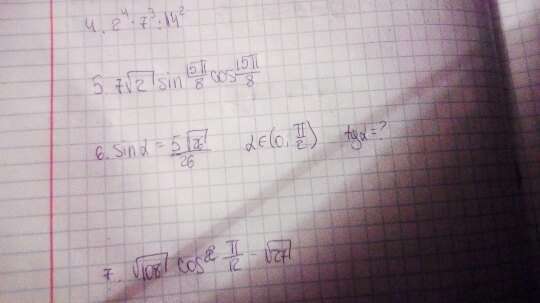 4. 2⁴ · 7³ : 14²
5. 7√2 sin 15π/8 cos 15π/8
6. sin α = 5√26/26 α ∈ (0, π/2) tg α = ?
7. √108 cos² π/12 - √27